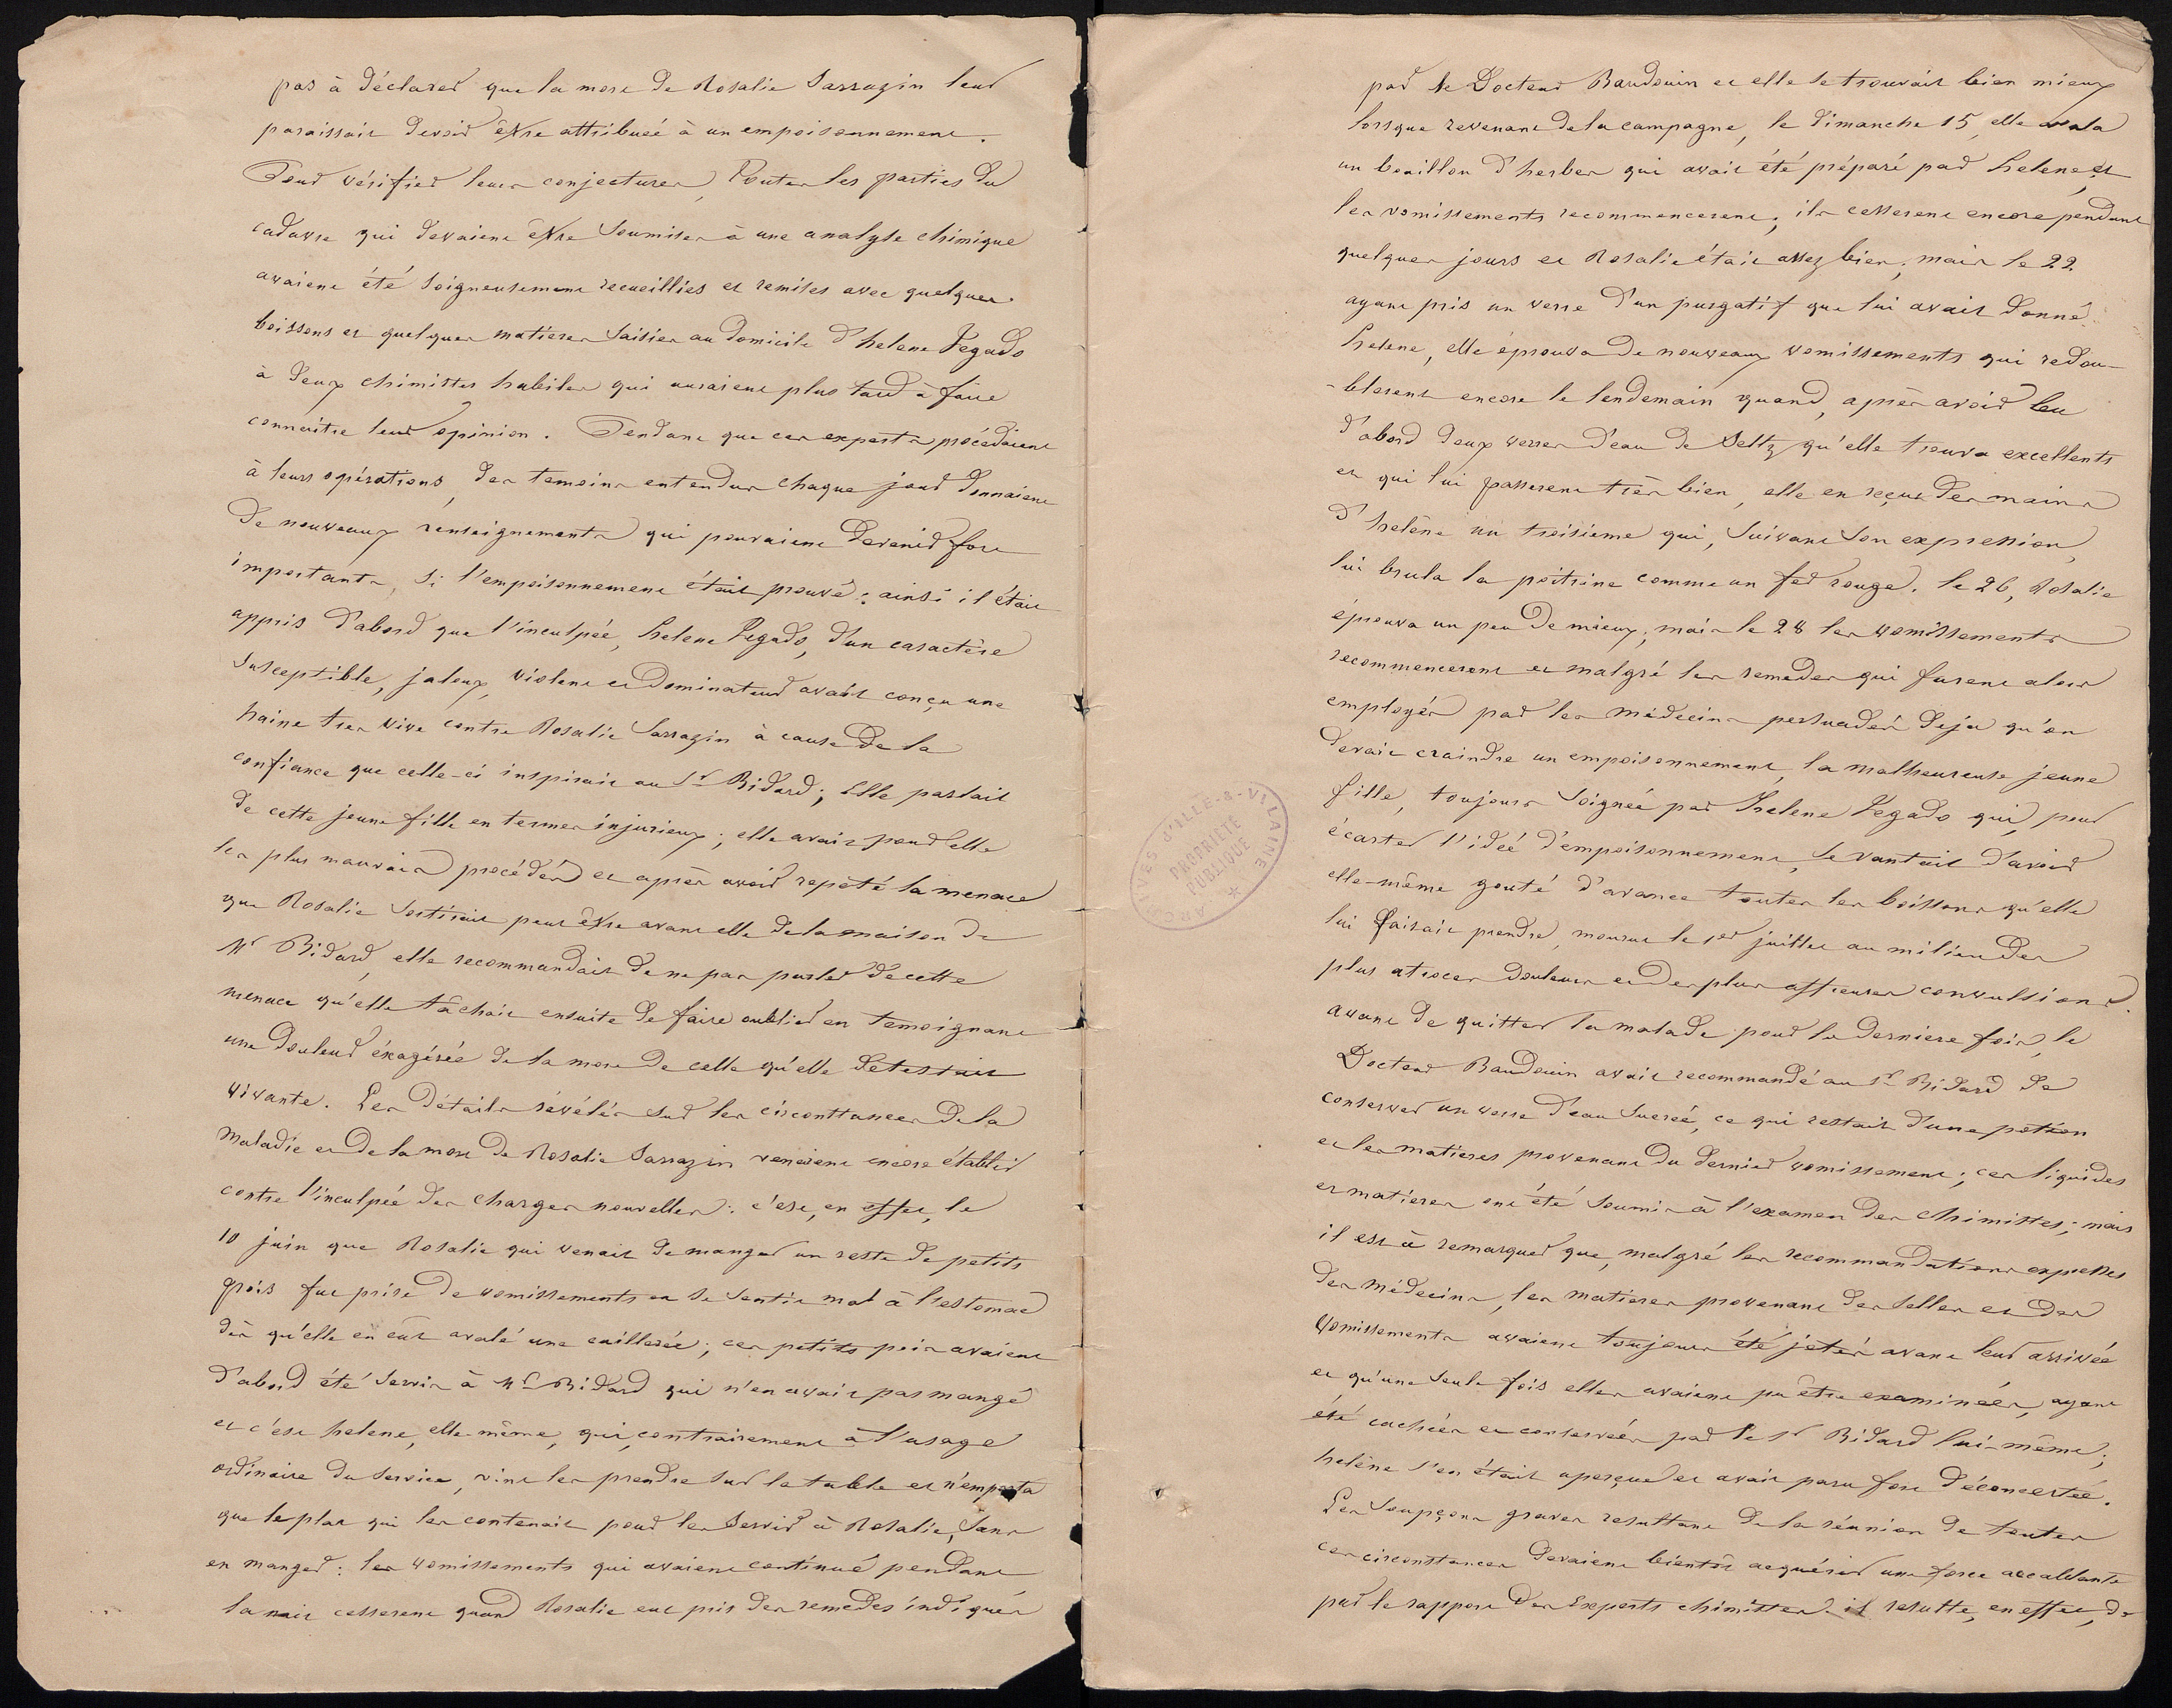 pas à déclarer que la mort de Rosalie Sarrazin leur
paraissait devoir être attribuée à un empoisonnement.
Pour vérifier leurs conjectures, toutes les parties du
cadavre qui devaient être soumises à une analyse chimique
avaient été soigneusement recueillies et remises avec quelques
boissons et quelques matières saisies au domicile d'helene Jegado
à deux chimistes habiles qui auraient plus tard à faire
connaitre leur opinion. Pendant que ces experts procédaient
à leurs opérations, des temoins entendus chaque jour donnaient
de nouveaux renseignements qui pouvaient devenir fort
importants, si l'empoisonnement était prouvé: ainsi il était
appris d'abord que l'inculpée, helene Jegado, d'un caractère
susceptible, jaloux, violent et dominateur avait conçu une
haine tres vive contre Rosalie Sarrazin à cause de la
confiance que celle-ci inspirait au Sr Bidard; Elle parlait
de cette jeune fille en termes injurieux; elle avait pour elle
les plus mauvais procédés et après avoir repété la menace
que Rosalie sortirait peut être avant elle de la maison de
Mr Bidard, elle recommandait de ne pas parler de cette
menace qu'elle tâchait ensuite de faire oublier en temoignant
une douleur éxagérée de la mort de celle qu'elle detestait
vivante. Les détails révélés sur les circonstances de la
maladie et de la mort de Rosalie Sarrazin venaient encore établir
contre l'inculpée des charges nouvelles: c'est, en effet, le
10 juin que Rosalie qui venait de manger un reste de petits
pois fut prise de vomissements et se sentit mal à l'estomac
dès qu'elle en eût avalé une cuillerée; ces petits pois avaient
d'abord été servis à Mr Bidard qui n'en avait pas mangé
et c'est helene, elle-même, qui, contrairement à l'usage
ordinaire du service, vint les prendre sur la table et n'emporta
que le plat qui les contenait pour les servir à Rosalie, sans
en manger: les vomissements qui avaient continué pendant
la nuit cesserent quand Rosalie eut pris des remedes indiqués
par le Docteur Baudouin et elle se trouvait bien mieux
lorsque revenant de la campagne, le dimanche 15, elle avala
un bouillon d'herbes qui avait été préparé par helene et
les vomissements recommencerent; ils cesserent encore pendant
quelques jours et Rosalie était assez bien; mais le 22
ayant pris un verre d'un purgatif que lui avait donné
helene, elle éprouva de nouveaux vomissements qui redou-
-blerent encore le lendemain quand, après avoir bu
d'abord deux verres d'eau de Seltz qu'elle trouva excellents
et qui lui passerent très bien, elle en reçut des mains
d'helène un troisième qui, suivant son expression,
lui brula la poitrine comme un fer rouge. le 26, Rosalie
éprouva un peu de mieux; mais le 28 les vomissements
recommencerent et malgré les remedes qui furent alors
employés par les médecins persuadés deja qu'on
devait craindre un empoisonnement, la malheureuse jeune
fille, toujours soignée par helene Jegado qui, pour
écarter l'idée d'empoisonnement, se vantait d'avoir
elle-même gouté d'avance toutes les boissons qu'elle
lui faisait prendre, mourut le 1er juillet au milieu des
plus atroces douleurs et des plus affreuses convulsions.
avant de quitter la malade pour la derniere fois, le
Docteur Baudouin avait recommandé au Sr Bidard de
conserver un verre d'eau sucrée, ce qui restait d'une potion
et les matieres provenant du dernier vomissement; ces liquides
et matieres ont été soumis à l'examen des chimistes; mais
il est à remarquer que, malgré les recommandations expresses
des médecins, les matieres provenant des selles et des
vomissements avaient toujours été jetés avant leur arrivée
et qu'une seule fois elles avaient pu être examinées, ayant
été cachées et conservées par le Sr Bidard lui-même;
helène s'en était aperçue et avait paru fort déconcertée.
Les soupçons graves resultant de la réunion de toutes
ces circonstances devaient bientôt acquérir une force accablante
par le rapport des Experts chimistes. il resulte, en effet, de
ARCHIVES D'ILLE-&-VILAINE
PROPRIÉTÉ
PUBLIQUE